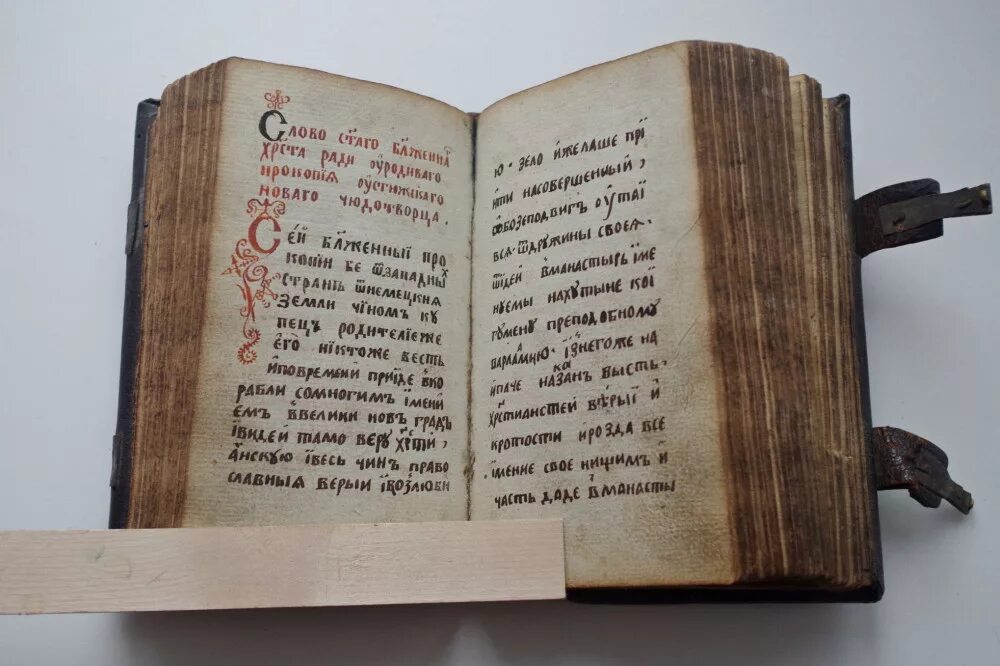 Слово ст҃аго бл҃женна
хрс҃та ради оуродиваго
прокопїя оустюжскаго
новаго чюдотворца .
Сей бл҃женныї про
копїи бе ѿзападны
страны ѿнемецкия
земли чїномъ ку
пецъ родителїеже
его нїктоже весть
иповремени прїиде вко
рабли сомногимъ їменїй
емъ ввелики новъ градъ
ївидей тамо веру хрс҃тї ,
анскую їветь чинъ право
славныя верыи їкозлюби
ю · зело ижелаше прї
ити насовершенный ,
обозеподвигъ оустаї
вся ѿдружины своея ·
ѿїдеи вманастырь їме
нуемы нахутыне кої
гумену преподобному
варламию · їзнегоже на
ипаче наказанъ бысть ·
хрс҃тианстей верыї и
кротости ирозда все
їмение свое нищимъ и
часть даде вманасты